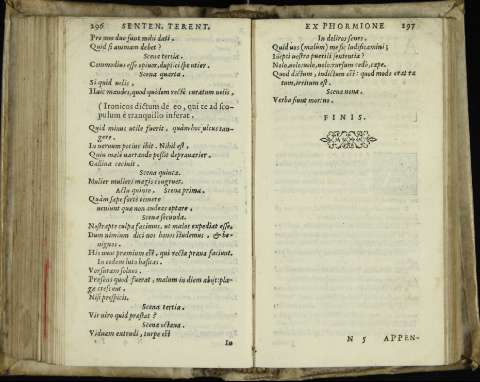 296 SENTEN. TERENT.
Pro me due sunt mihi dati.
Quid si animam debet?
Scena tertia.
Commodius esse opinor, duplici spe utier.
Scena quarta.
Si quid velis.
Huic mandes, quod quidem recte curatum velis.
(Ironicos dictum de eo, qui te ad sco-
pulum e tranquillo inferat.
Quid minus utile fuerit, quàm hoc ulcus tan-
gere.
In nervum potius ibit. Nihil est.
Quin male narrando possit depravarier.
Gallina cecinit.
Scena quinta.
Mulier mulieri magis congruet.
Actu quinto. Scena prima.
Quàm sæpe forte temere
eveniunt quæ non audeas optare.
Scena secunda.
Nostrapte culpa facimus, ut malos expediat esse.
Dum nimium dici nos bonos studemus, & be-
nignos.
His nunc præmium est, qui recta prava faciunt.
In eodem luto hæsitas.
Versuram solves.
Præsens quod fuerat, malum in diem abijt: pla-
gæ crescunt.
Nisi prospicis.
Scena tertia.
Vir viro quid præstat?
Scena octava.
Viduam extrudi, turpe est
In
EX PHORMIONE 297
In deliros senes.
Quid vos (malum) me sic ludificamini;
Inepti vestra puerili sententia?
Nolo, volo: volo, nolo: rursum cedo, cape.
Quod dictum, indictum est: quod modo erat ra
tum, irritum est.
Scena nona.
Verba fiunt mortuo.
FINIS.
N 5 APPEN-